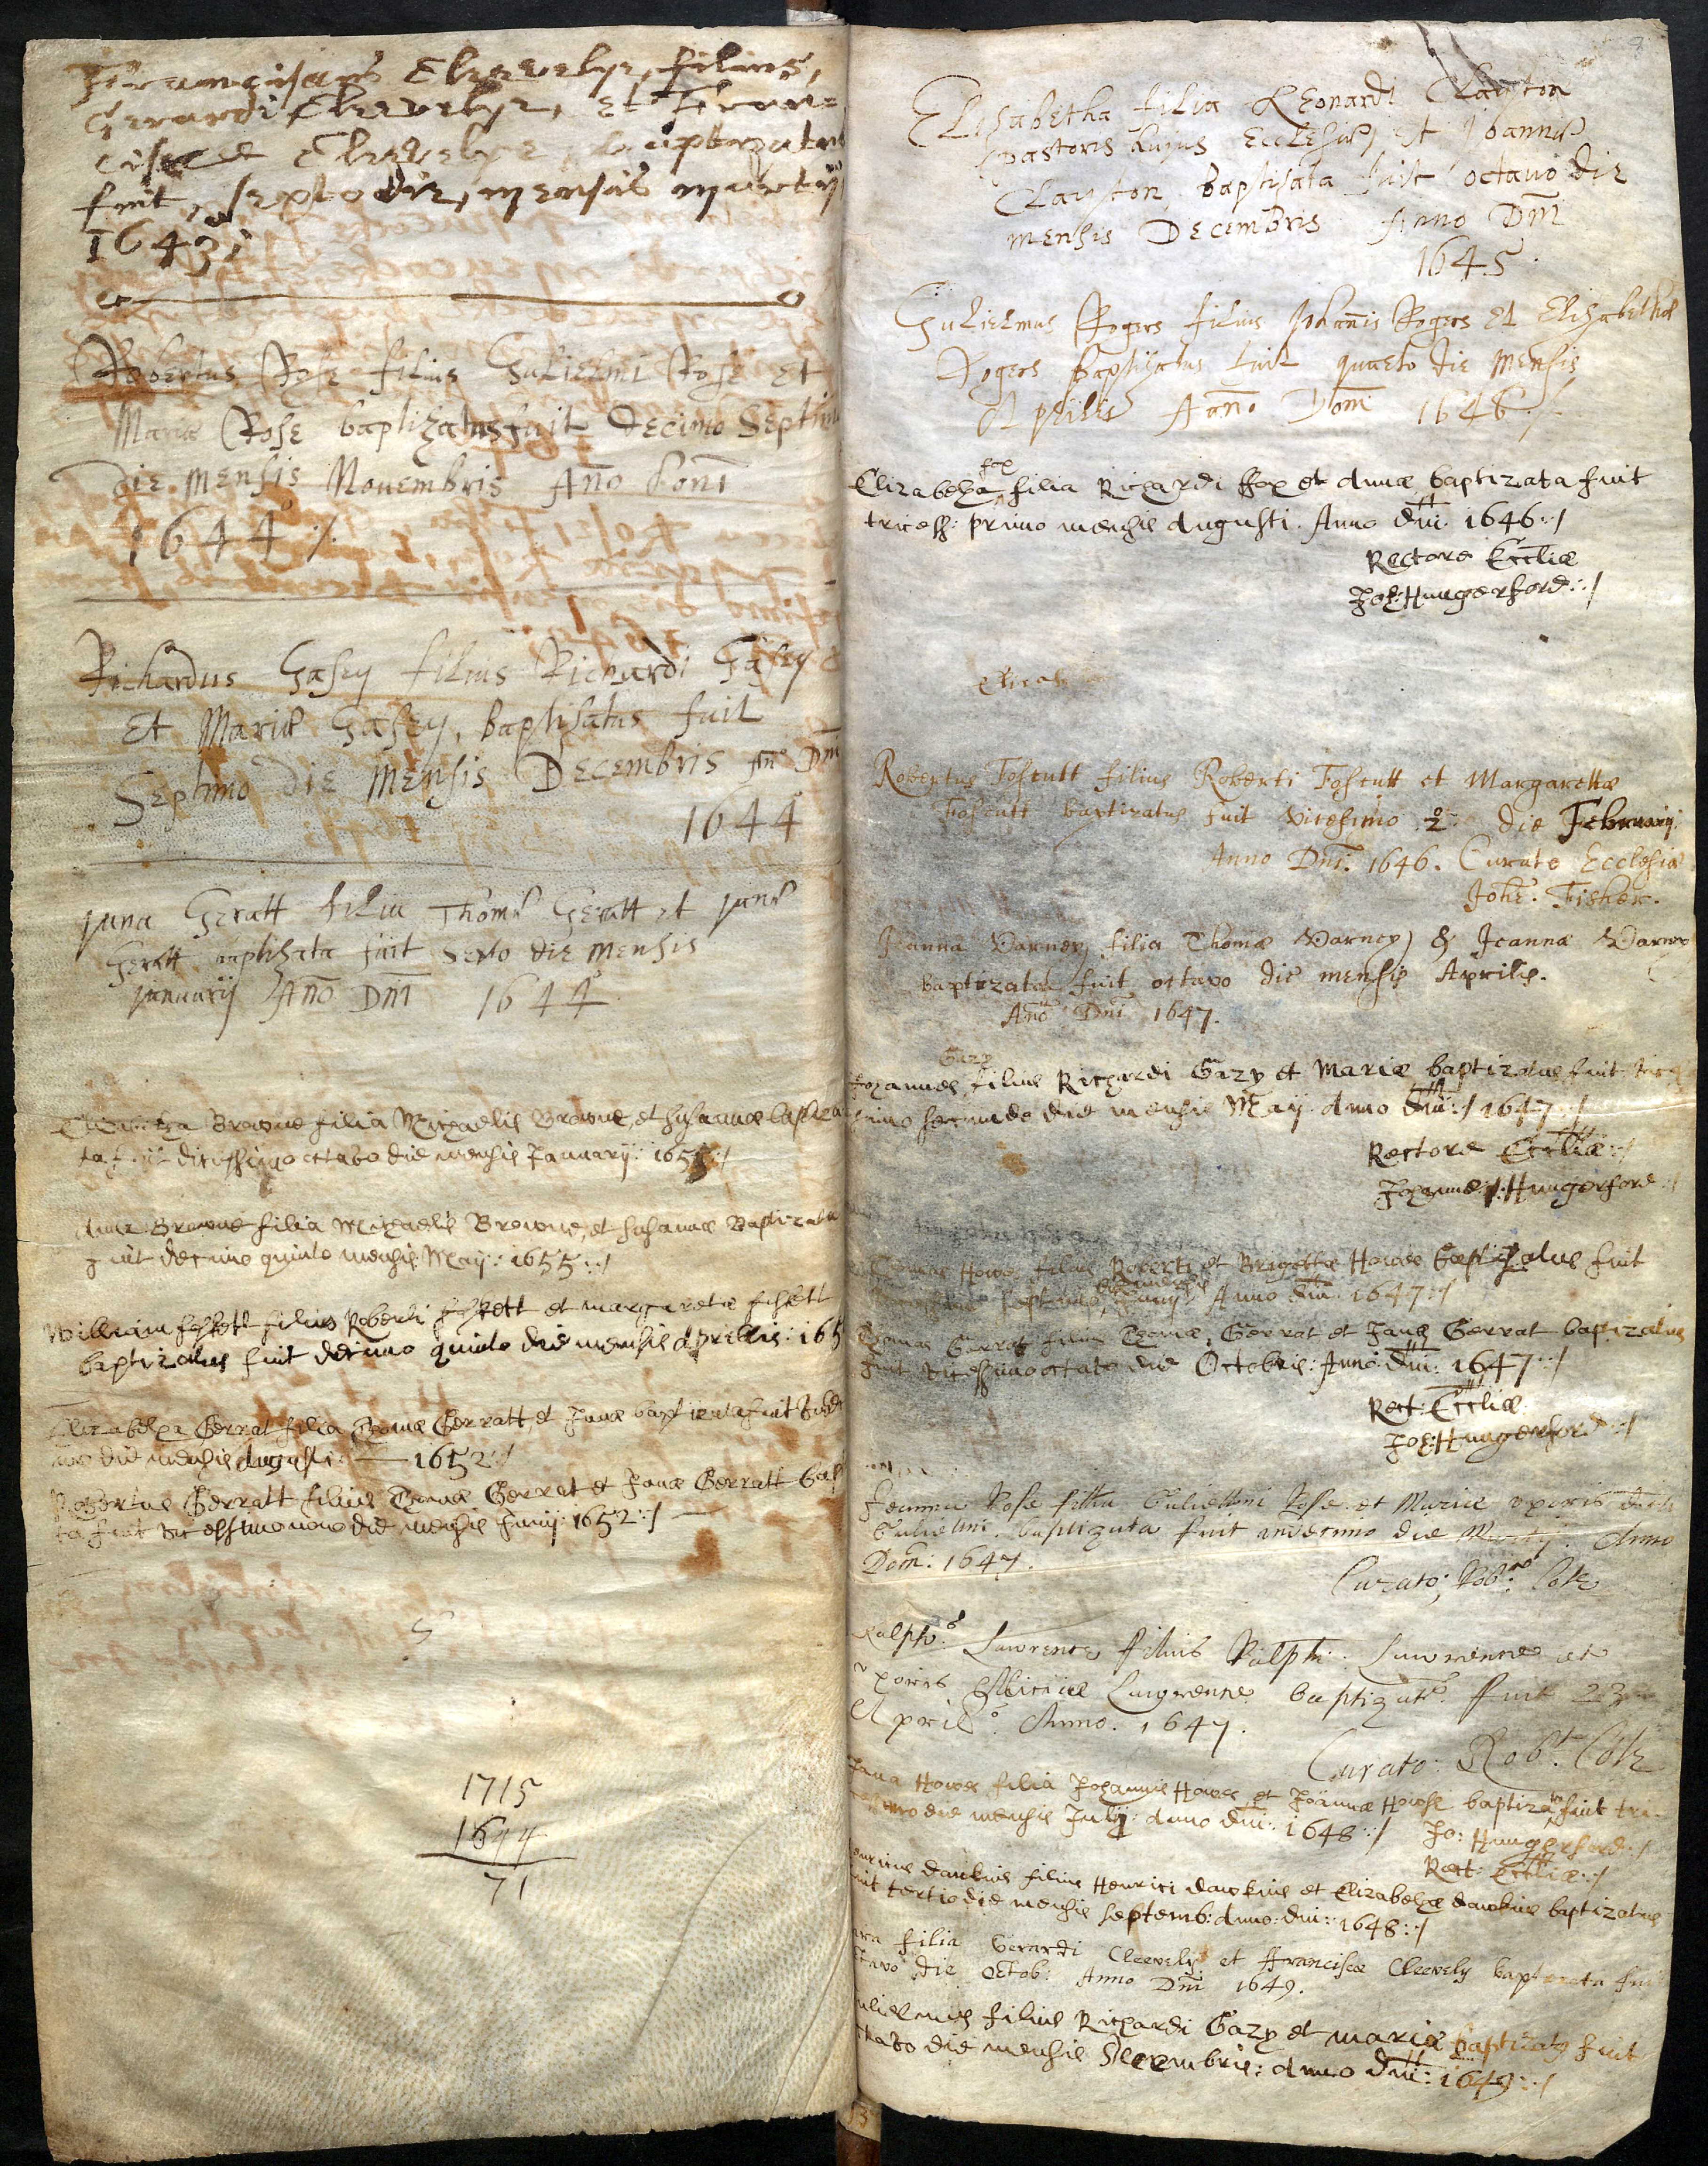 Franciscus Clevelye, filius,
Gerardi Clevelye, et Fran=
ciscæ Clevelye, baptizatus
fuit, sexto die, mensis martij
1643;
Robertus Rose filius Gulielmi Rose et
Mariæ Rose baptizatus fuit Decimo Septimo
Die Mensis Nouembris Ano Domi
1644 ·/.
Richardus Gasey filius Richardi Gasey
Et Mariæ Gasey, baptisatus fuit
Septimo Die Mensis Decembris Ano Dm
1644
Jana Geratt filia Thomæ Geratt et Janæ
Geratt baptisata fuit Sexto die Mensis
Januarij Año Dm 1644
Browne filia Michaelis Browne, et Susannæ baptiza
ta fuit octavo die mensis January: 165
Anne Browne filia Michaelis Browne, et Susannæ Baptizata
fuit decimo quinto mensis Maij: 1655:/
William foskett filius Roberti foskett et margaretæ foskett
baptizatus fuit decimo quinto die mensis Aprillis: 165
Elizabetha Gerrat filia Thomæ Gerratt, et Janæ baptizata fuit
mo die mensis Augusti: — 1652:/
Robertus Gerratt filius Thomæ Gerrat et Janæ Gerratt bap
ta fuit vicessimo nono die mensis Junij: 1652:/
1715
1644
71
8
Elisabetha filia Leonardi Clayton
pastoris hujus Ecclesiæ, et Joannæ
Clayton, baptisata fuit octavo die
mensis Decembris Anno Dm
1645
Gulielmus Rogers filius Johannis Rogers et Elizabethæ
Rogers baptizatus fuit quarto die Mensis
Aprilis Año Dom 1646 ·/.
fox
Elizabetha filia Richardi ffox et Annæ baptizata fuit
tricess: primo mensis Augusti. Anno dni: 1646:/
Rectore Eccliæ
Joh: Hungerford:/
Elizab
Robertus Foscutt filius Roberti Foscutt et Margarettæ
Foscutt baptizatus fuit vicesimo 2o die February
Anno Dni: 1646. Curato Ecclesiæ
Johe. Fisher.
Jeanna Varney filia Thomæ Varney & Jeannæ Varney
baptizata fuit octavo die mensis Aprilis.
Ano Dni 1647.
Gazy
Johannes filius Richardi Gazy et Mariæ baptizatus fuit
simo secundo die mensis Maij Anno dni:/ 1647:/
Rectore Eccliæ:/
Johanne Hungerford:/
Thomas Howse filius Roberti et Brigettæ Howse baptizatus fuit
septimo die mensis Junij Anno dni: 1647:/
Thomas Gerrat filius Thomæ Gerrat et Janæ Gerrat baptizatus
fuit vicessimo octavo die Octobris: Anno: dni: 1647:/
Rect: Eccliæ
Joh: Hungerford:/
Jeanna Rose filia Gulielmi Rose et Mariæ uxoris dicti
Gulielmi baptizata fuit undecimo die Anno
Dom: 1647.
Curato; Robto Cole
Ralphus Lawrence filius Ralphi Lawrence et
uxoris Aliciæ Lawrence baptizatus fuit 23
Aprilo. Anno. 1647.
Curato: Robt. Cole
Jana Howes filia Johannis Howes et Joannæ Howse baptizata fuit tri-
die mensis Julij: Anno dni: 1648:/ Jo: Hungerford:/
Rect: Eccliæ:/
enricus dawkins filius Henrici dawkins et Elizabethæ dawkins baptizatus
uit tertio die mensis Septemb: Anno: dni: 1648:/
ara filia Gerardi Cleevely et Franciscæ Cleevely baptizata fui
tavo die Octob: Anno Dni 1649.
ulielmus filius Richardi Gazy et mariæ baptizatus fuit
ctavo die mensis Decembris: Anno dni: 1649:/
13